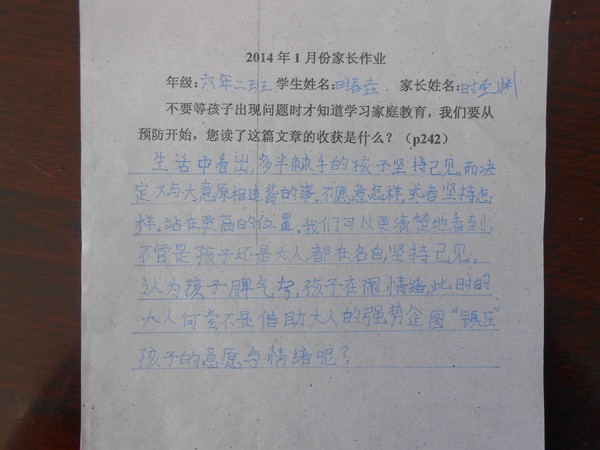 2014年1月份家长作业
年级:六年二班 学生姓名:时春垚. 家长姓名:时亚渊
不要等孩子出现问题时才知道学习家庭教育，我们要从
预防开始，您读了这篇文章的收获是什么？（p242）
生活中看出,多半棘手的孩子坚持己见,而决
定了与大意原相违背的事,不愿意怎样,或者坚持怎
样,站在更高的位置,我们可以更清楚地看到,
不管是孩子还是大人,都在各自坚持己见,
认为孩子脾气专,孩子在闹情绪,此时的
大人何尝不是借助大人的强势企图“镇压”
孩子的意愿与情绪呢?